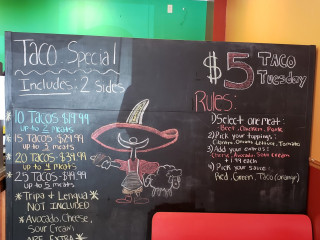 Taco Special
Includes: 2 Sides
10 Tacos $19.99
up to 2 meats
15 Tacos $29.99
up to 3 meats
20 Tacos $39.99
up to 4 meats
25 Tacos $49.99
up to 5 meats
*Tripa + Lengua*
NOT INCLUDED
*Avocado, Cheese,
Sour Cream
ARE EXTRA*
$5 TACO
Tuesday
Rules:
1) Select one meat:
Beef, Chicken, Pork
2) Pick your toppings:
Cilantro, Onion, Lettuce, Tomato
3) Add your extras:
Cheese, Avocado, Sour cream
+ 1.99 each
4) Pick your sauce:
Red, Green, Taco (orange)